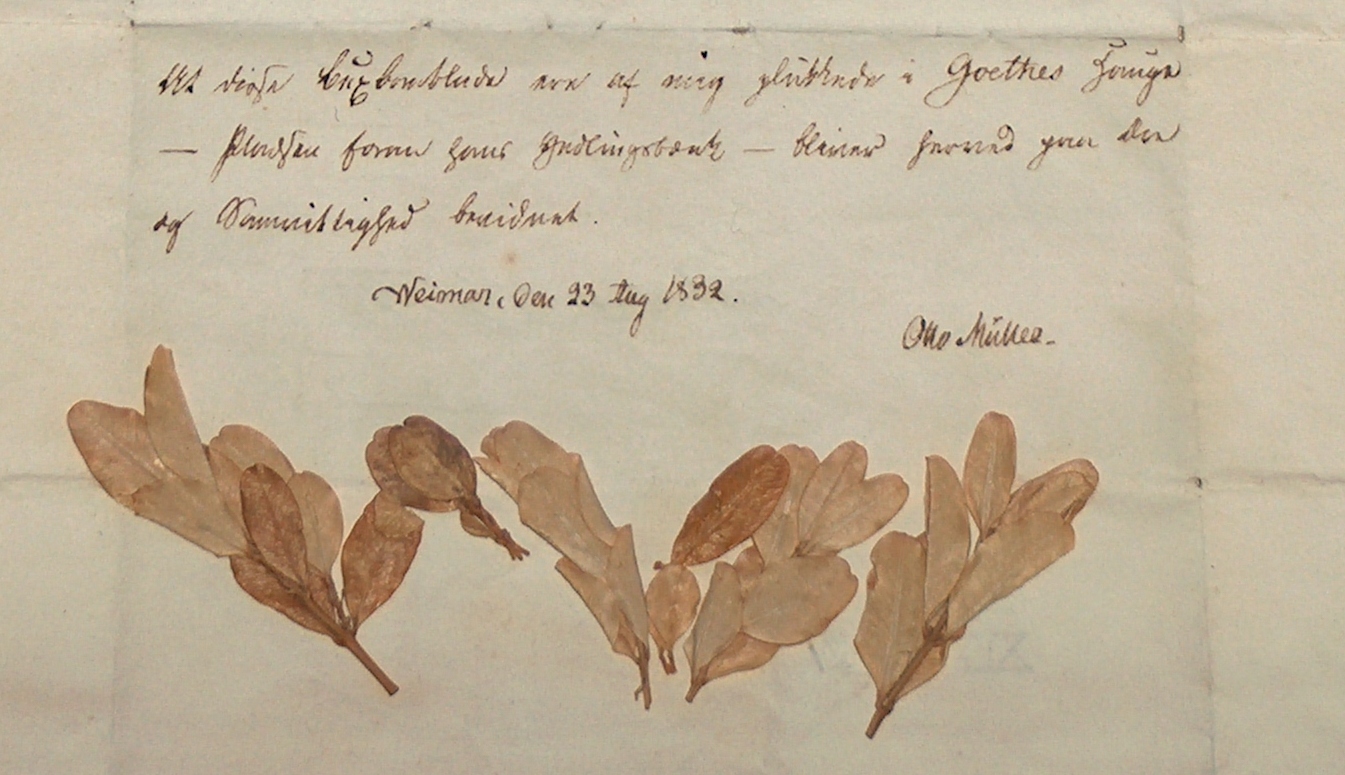 At disse Buxbomblade ere af mig plukkede i Goethes Hauge
— Pladsen foran hans Yndlingsbænk — bliver herved paa Ære
og Samvittighed bevidnet.
Weimar, den 23 Aug 1832.
Otto Müller.